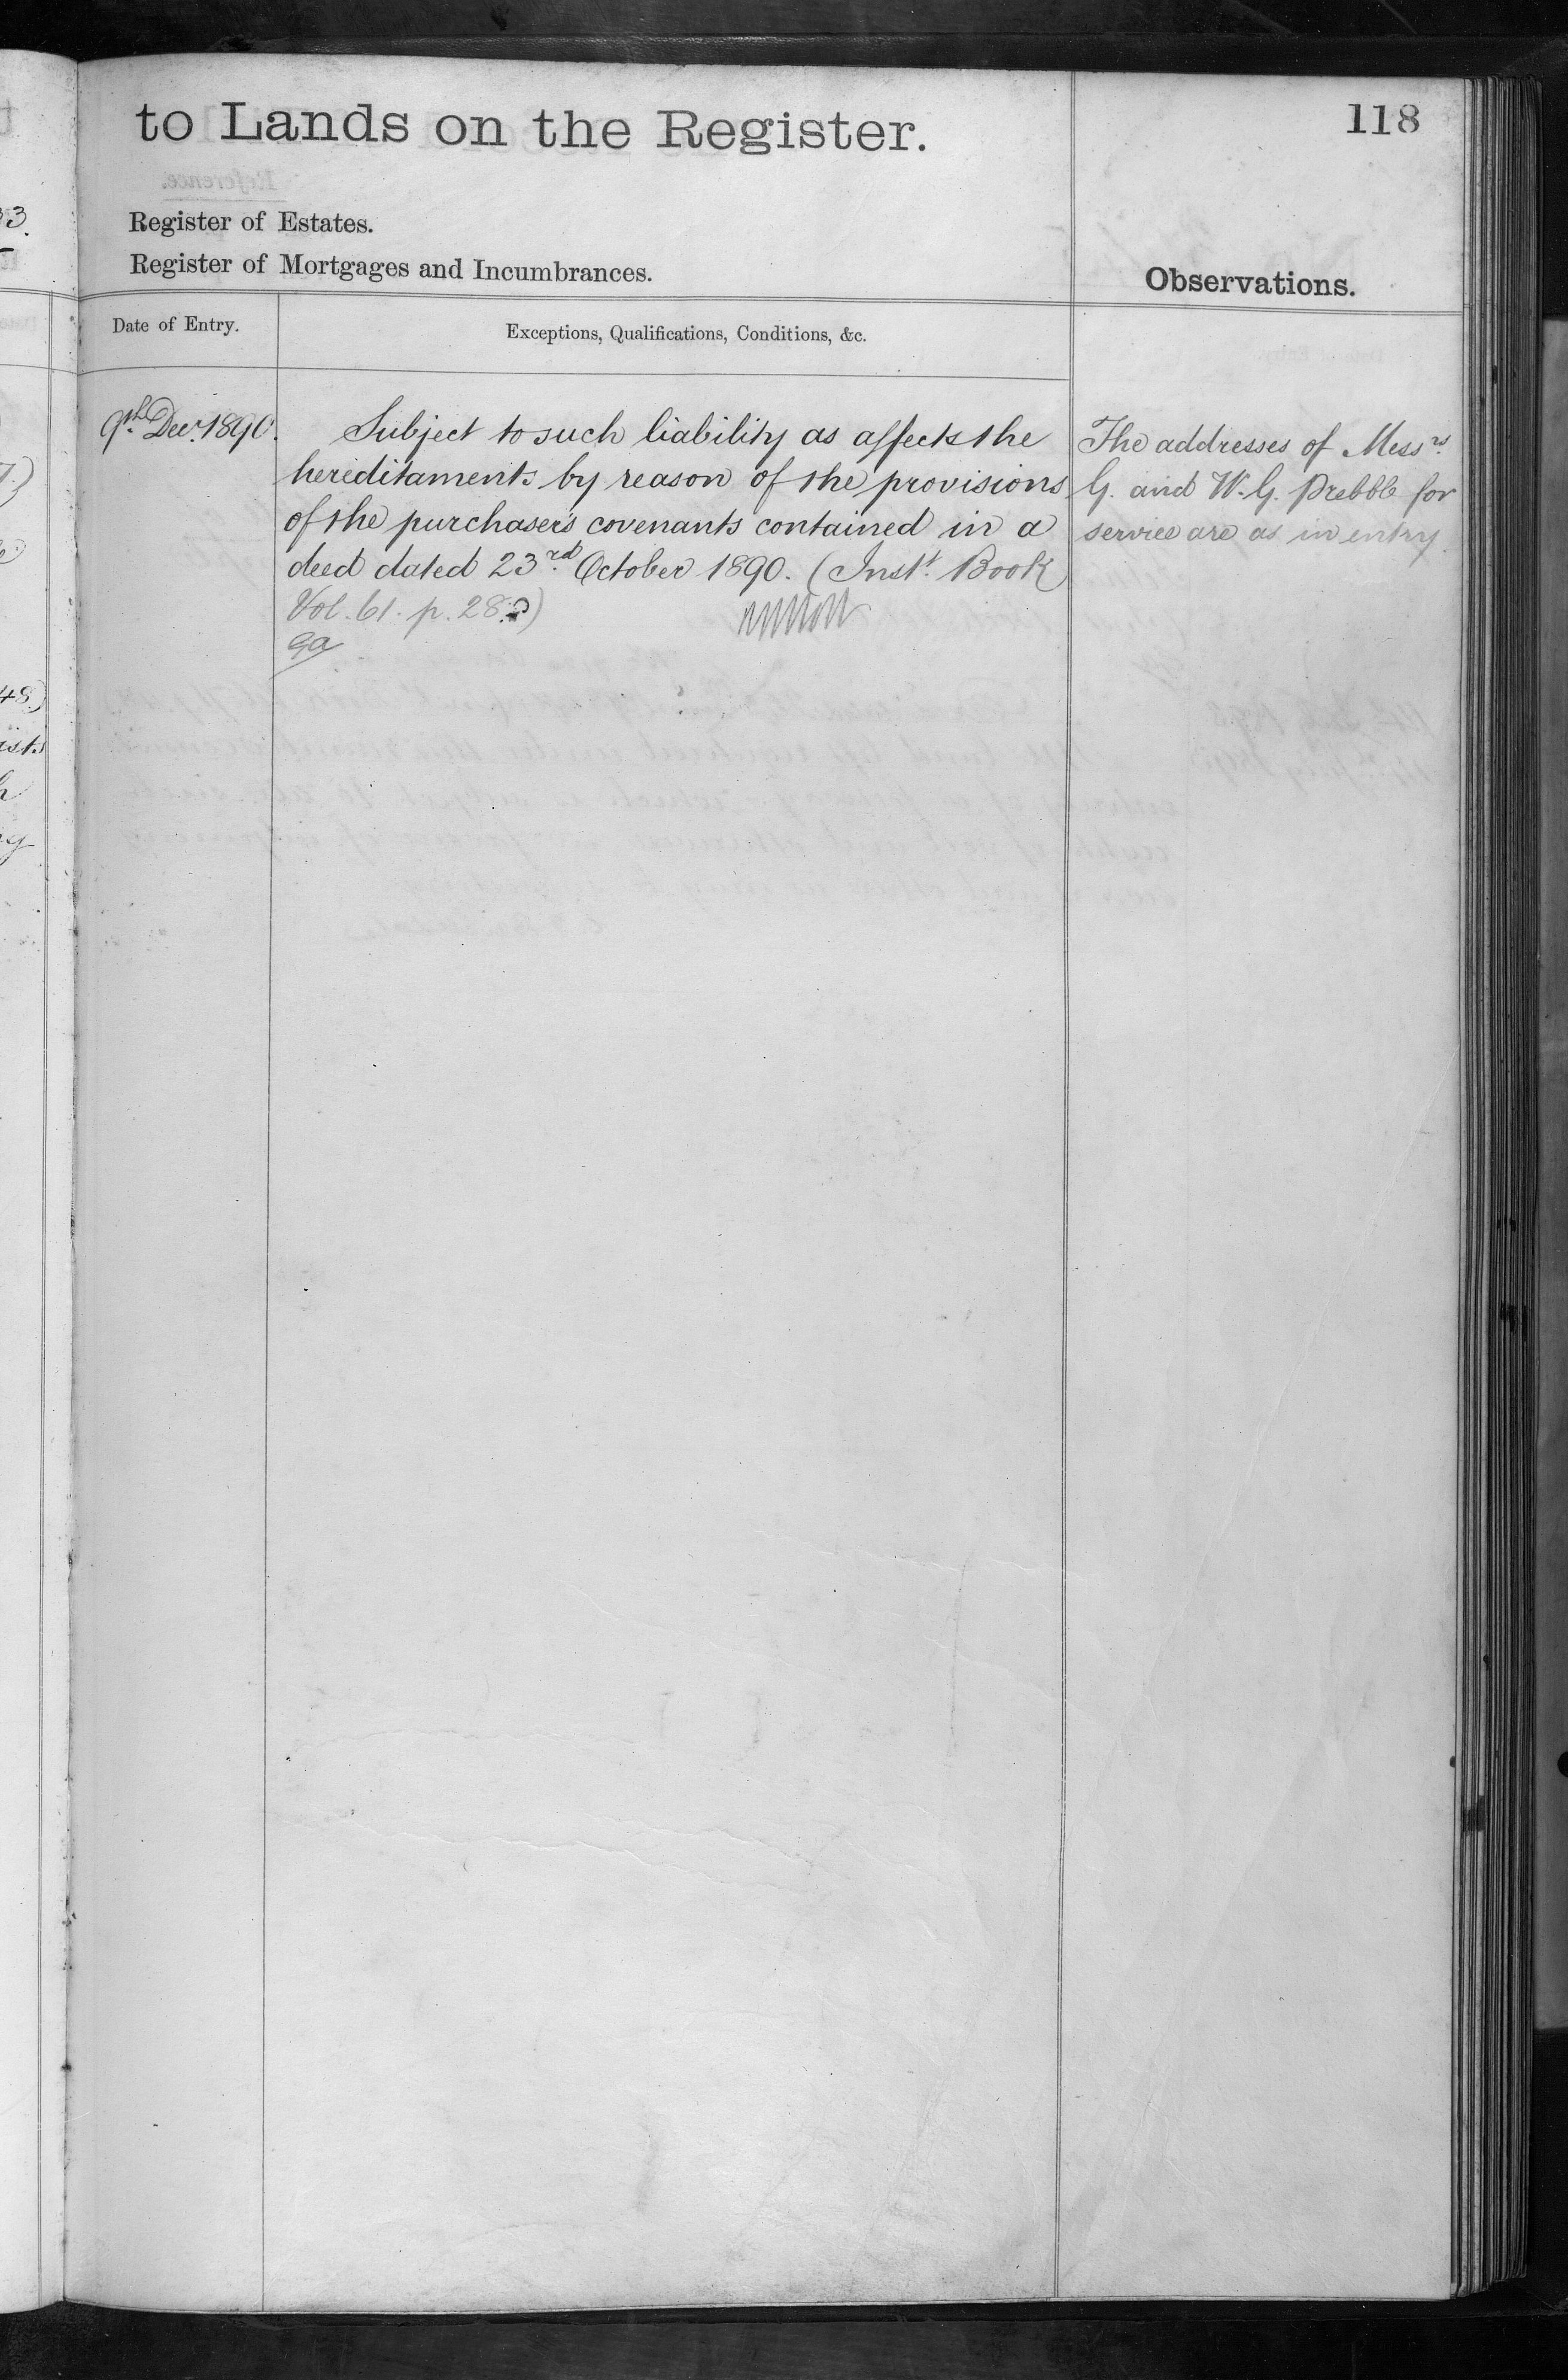 to Lands on the Register.
118
Register of Estates.
Register of Mortgages and Incumbrances.
Observations.
Date of Entry.
Exceptions, Qualifications, Conditions, &c.
9th Decr. 1890.
Subject to such liability as affects the
hereditaments by reason of the provisions
of the purchasers covenants contained in a
deed dated 23rd October 1890. (Instt. Book
Vol. 61. p. 28
The addresses of Messrs.
G. and W. G. Prebble for
service are as in entry.